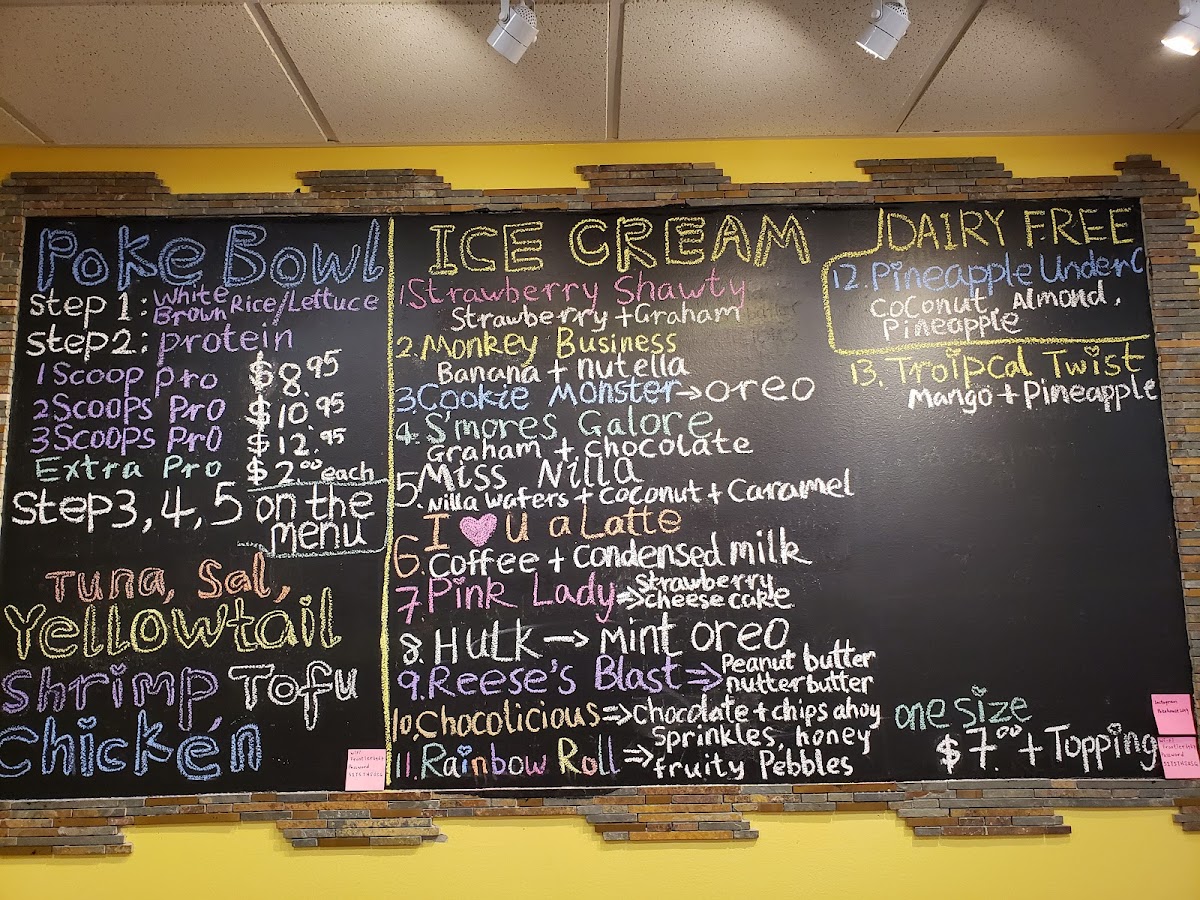 Poke Bowl
Step 1: White Brown Rice/Lettuce
Step2: protein
1 Scoop pro $8.95
2 Scoops Pro $10.95
3 Scoops Pro $12.95
Extra Pro $2.00 each
Step3, 4, 5 on the
menu
Tuna, Sal,
Yellowtail
Shrimp Tofu
Chicken
ICE CREAM
1. Strawberry Shawty
Strawberry + Graham
2. Monkey Business
Banana + nutella
3. Cookie Monster → oreo
4. S'mores Galore
Graham + chocolate
5. Miss Nilla
Nilla wafers + coconut + Caramel
6. I ♥ u a Latte
coffee + condensed milk
7. Pink Lady ⇒ Strawberry
cheese cake
8. HULK → mint oreo
9. Reese's Blast ⇒ Peanut butter
nutterbutter
10. Chocolicious ⇒ chocolate + chips ahoy
11. Rainbow Roll ⇒ Sprinkles, honey
fruity Pebbles
DAIRY FREE
12. Pineapple UnderC
Coconut, Almond,
Pineapple
13. Troipcal Twist
Mango + Pineapple
one size
$7.00 + Topping